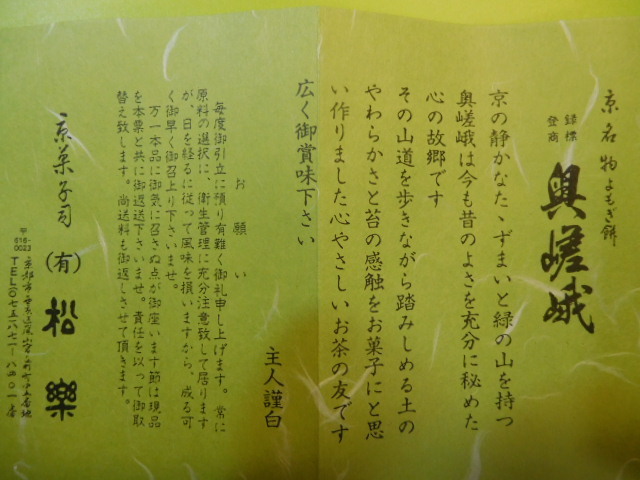 京名物よもぎ餅
登録
商標
奥嵯峨
京の静かなたゝずまいと緑の山を持つ
奥嵯峨は今も昔のよさを充分に秘めた
心の故郷です
その山道を歩きながら踏みしめる土の
やわらかさと苔の感触をお菓子にと思
い作りました心やさしいお茶の友です
広く御賞味下さい
主人謹白
お願い
毎度御引立に預り有難く御礼申し上げます。常に
原料の選択に、衛生管理に充分注意致して居ります
が、日を経るに従って風味を損いますから、成る可
く御早く御召上り下さいませ。
万一本品に御気に召さぬ点が御座います節は現品
を本票と共に御返送下さいませ。責任を以って御取
替え致します。尚送料も御返しさせて頂きます。
京菓子司
(有)松樂
〒
616-
0023
TEL〇七五-八七一-八四〇一番